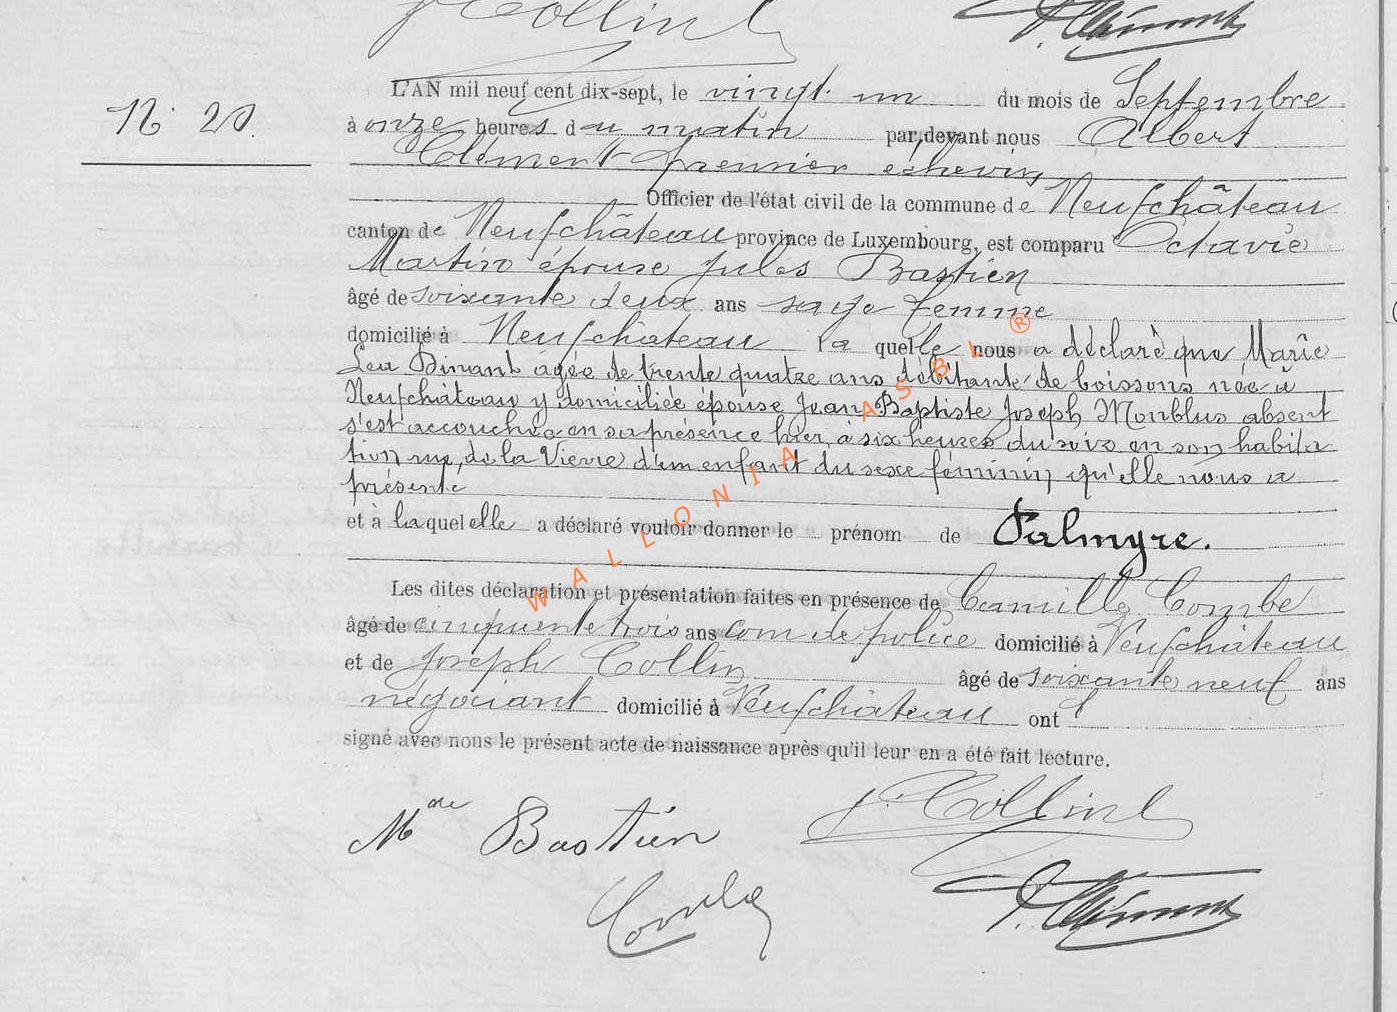 J. Collin
A. Clément
L'AN mil neuf cent dix-sept, le vingt un du mois de Septembre
N° 20.
à onze heures du matin par devant nous Albert
Clément premier échevin,
Officier de l'état civil de la commune de Neufchâteau
canton de Neufchâteau province de Luxembourg, est comparu Octavie
Martin épouse Jules Bastien
âgé de soixante deux ans sage femme
domicilié à Neufchateau la quelle nous a déclaré que Marie
Léa Dinant agée de trente quatre ans débitante de boissons née à
Neufchâteau y domiciliée épouse Jean Baptiste Joseph Monblus absent
s'est accouchée en sa présence hier à six heures du soir en son habita
tion rue de la Vierre d'un enfant du sexe féminin qu'elle nous a
présenté
et à laquel elle a déclaré vouloir donner le prénom de Palmyre.
Les dites déclaration et présentation faites en présence de Camille Combe
âgé de cinquante trois ans com de police domicilié à Neufchâteau
et de Joseph Collin âgé de soixante neuf ans
négociant domicilié à Neufchâteau ont
signé avec nous le présent acte de naissance après qu'il leur en a été fait lecture.
Mde Bastien
J. Collin
Combe
A. Clément
WALLONIA ASBL ®